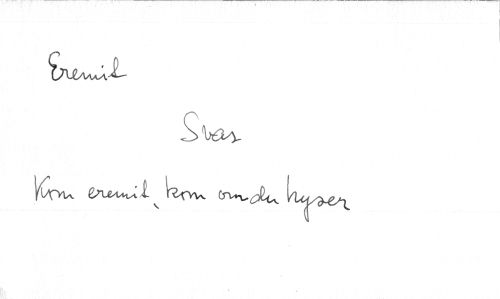 Eremit
Svar
Kom eremit, kom om du hyser